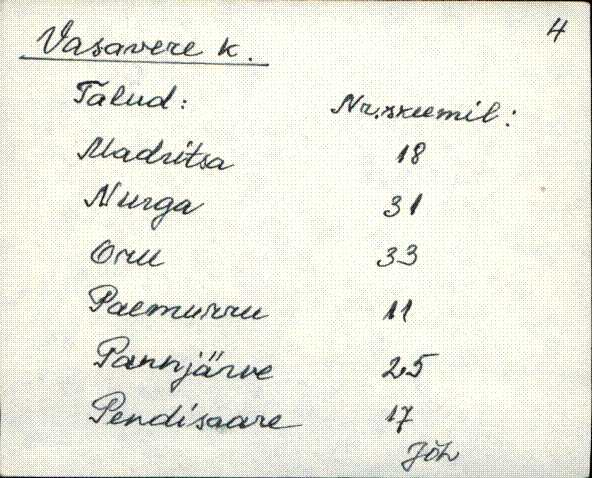 4
Vasavere k.
Talud: Nr. skeemil:
Madritsa 18
Nurga 31
Oru 33
Paemurru 11
Pannjärve 25
Pendisaare 17
Jõh